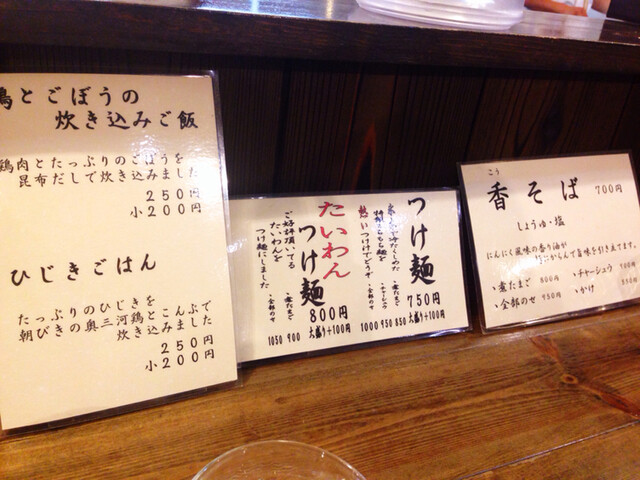 鶏とごぼうの
炊き込みご飯
鶏肉とたっぷりのごぼうを
昆布だしで炊き込みました
250円
小200円
ひじきごはん
たっぷりのひじきを
朝びきの奥三河鶏とこんぶで
炊き込みました
250円
小200円
つけ麺
750円
大盛り+100円
・煮たまご 850
・チャーシュウ 950
・全部のせ 1000
たいわん
つけ麺
800円
大盛り+100円
ご好評頂いてる
たいわんを
つけ麺にしました
・煮たまご 900
・全部のせ 1050
こう
香そば 700円
しょうゆ・塩
にんにく風味の香り油が
旨味を引き立てます。
・煮たまご 800円
・チャーシュウ 900円
・全部のせ 950円
・かけ